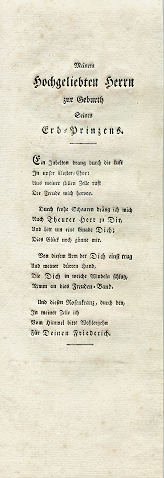 Meinem
Hochgeliebten Herrn
zur Geburth
Seines
Erb-Prinzens.
Ein Jubelton drang durch die Luft
In unser Kloster-Chor:
Aus meiner stillen Zelle ruft
Die Freude mich hervor.
Durch frohe Schaaren dräng ich mich
Nach Theurer Herr zu Dir,
Und bitt um eine Gnade Dich;
Dies Glück noch gönne mir.
Von diesem Arm der Dich einst trug
Und meiner dürren Hand,
Die Dich in weiche Windeln schlug,
Nimm an dies Freuden-Band.
Und diesen Rosenkranz, durch den,
In meiner Zelle ich
Vom Himmel bitt Wohlergehn
Für Deinen Friederich.